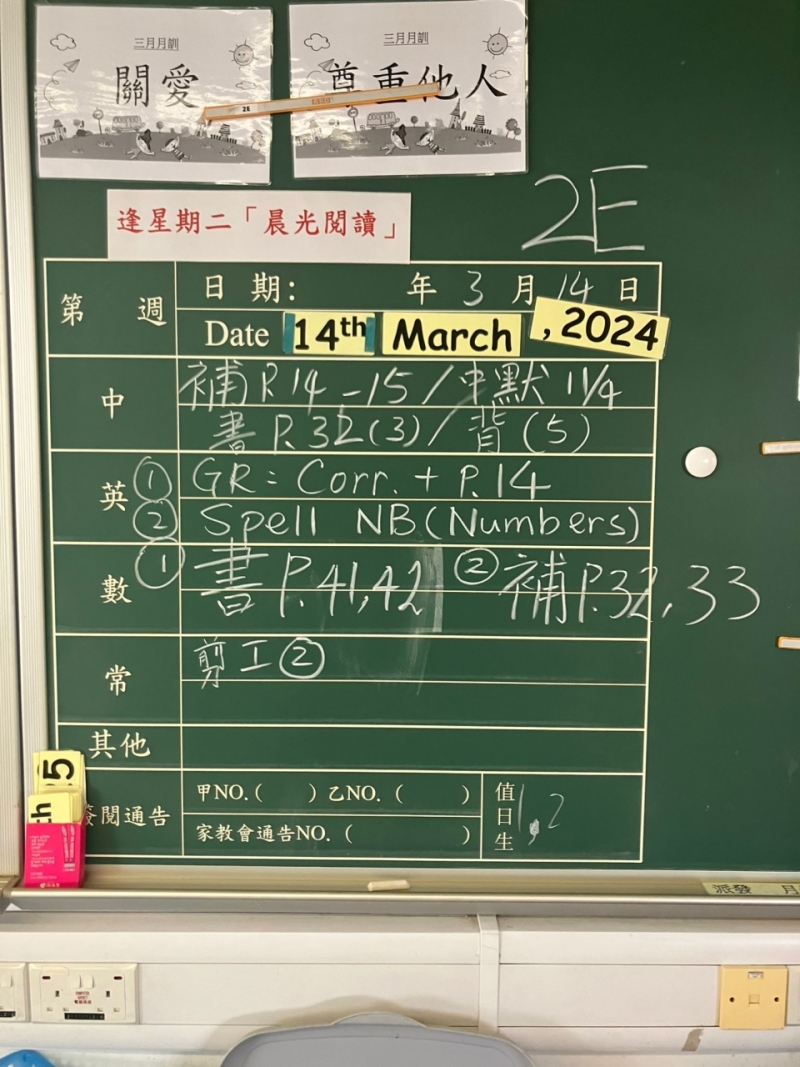 三月月訓
關愛
三月月訓
尊重他人
2E
逢星期二「晨光閱讀」
2E
第 週
日 期: 年 3 月 14 日
Date 14th March , 2024
中
補 P.14-15 / 中默 11/4
書 P.32(3) / 背(5)
英
① GR: Corr. + P.14
② Spell NB (Numbers)
數
① 書 P.41,42 ② 補 P.32,33
常
剪工②
其他
簽閱通告
甲NO.( ) 乙NO. ( )
家教會通告NO. ( )
值日生
1, 2
派發 月